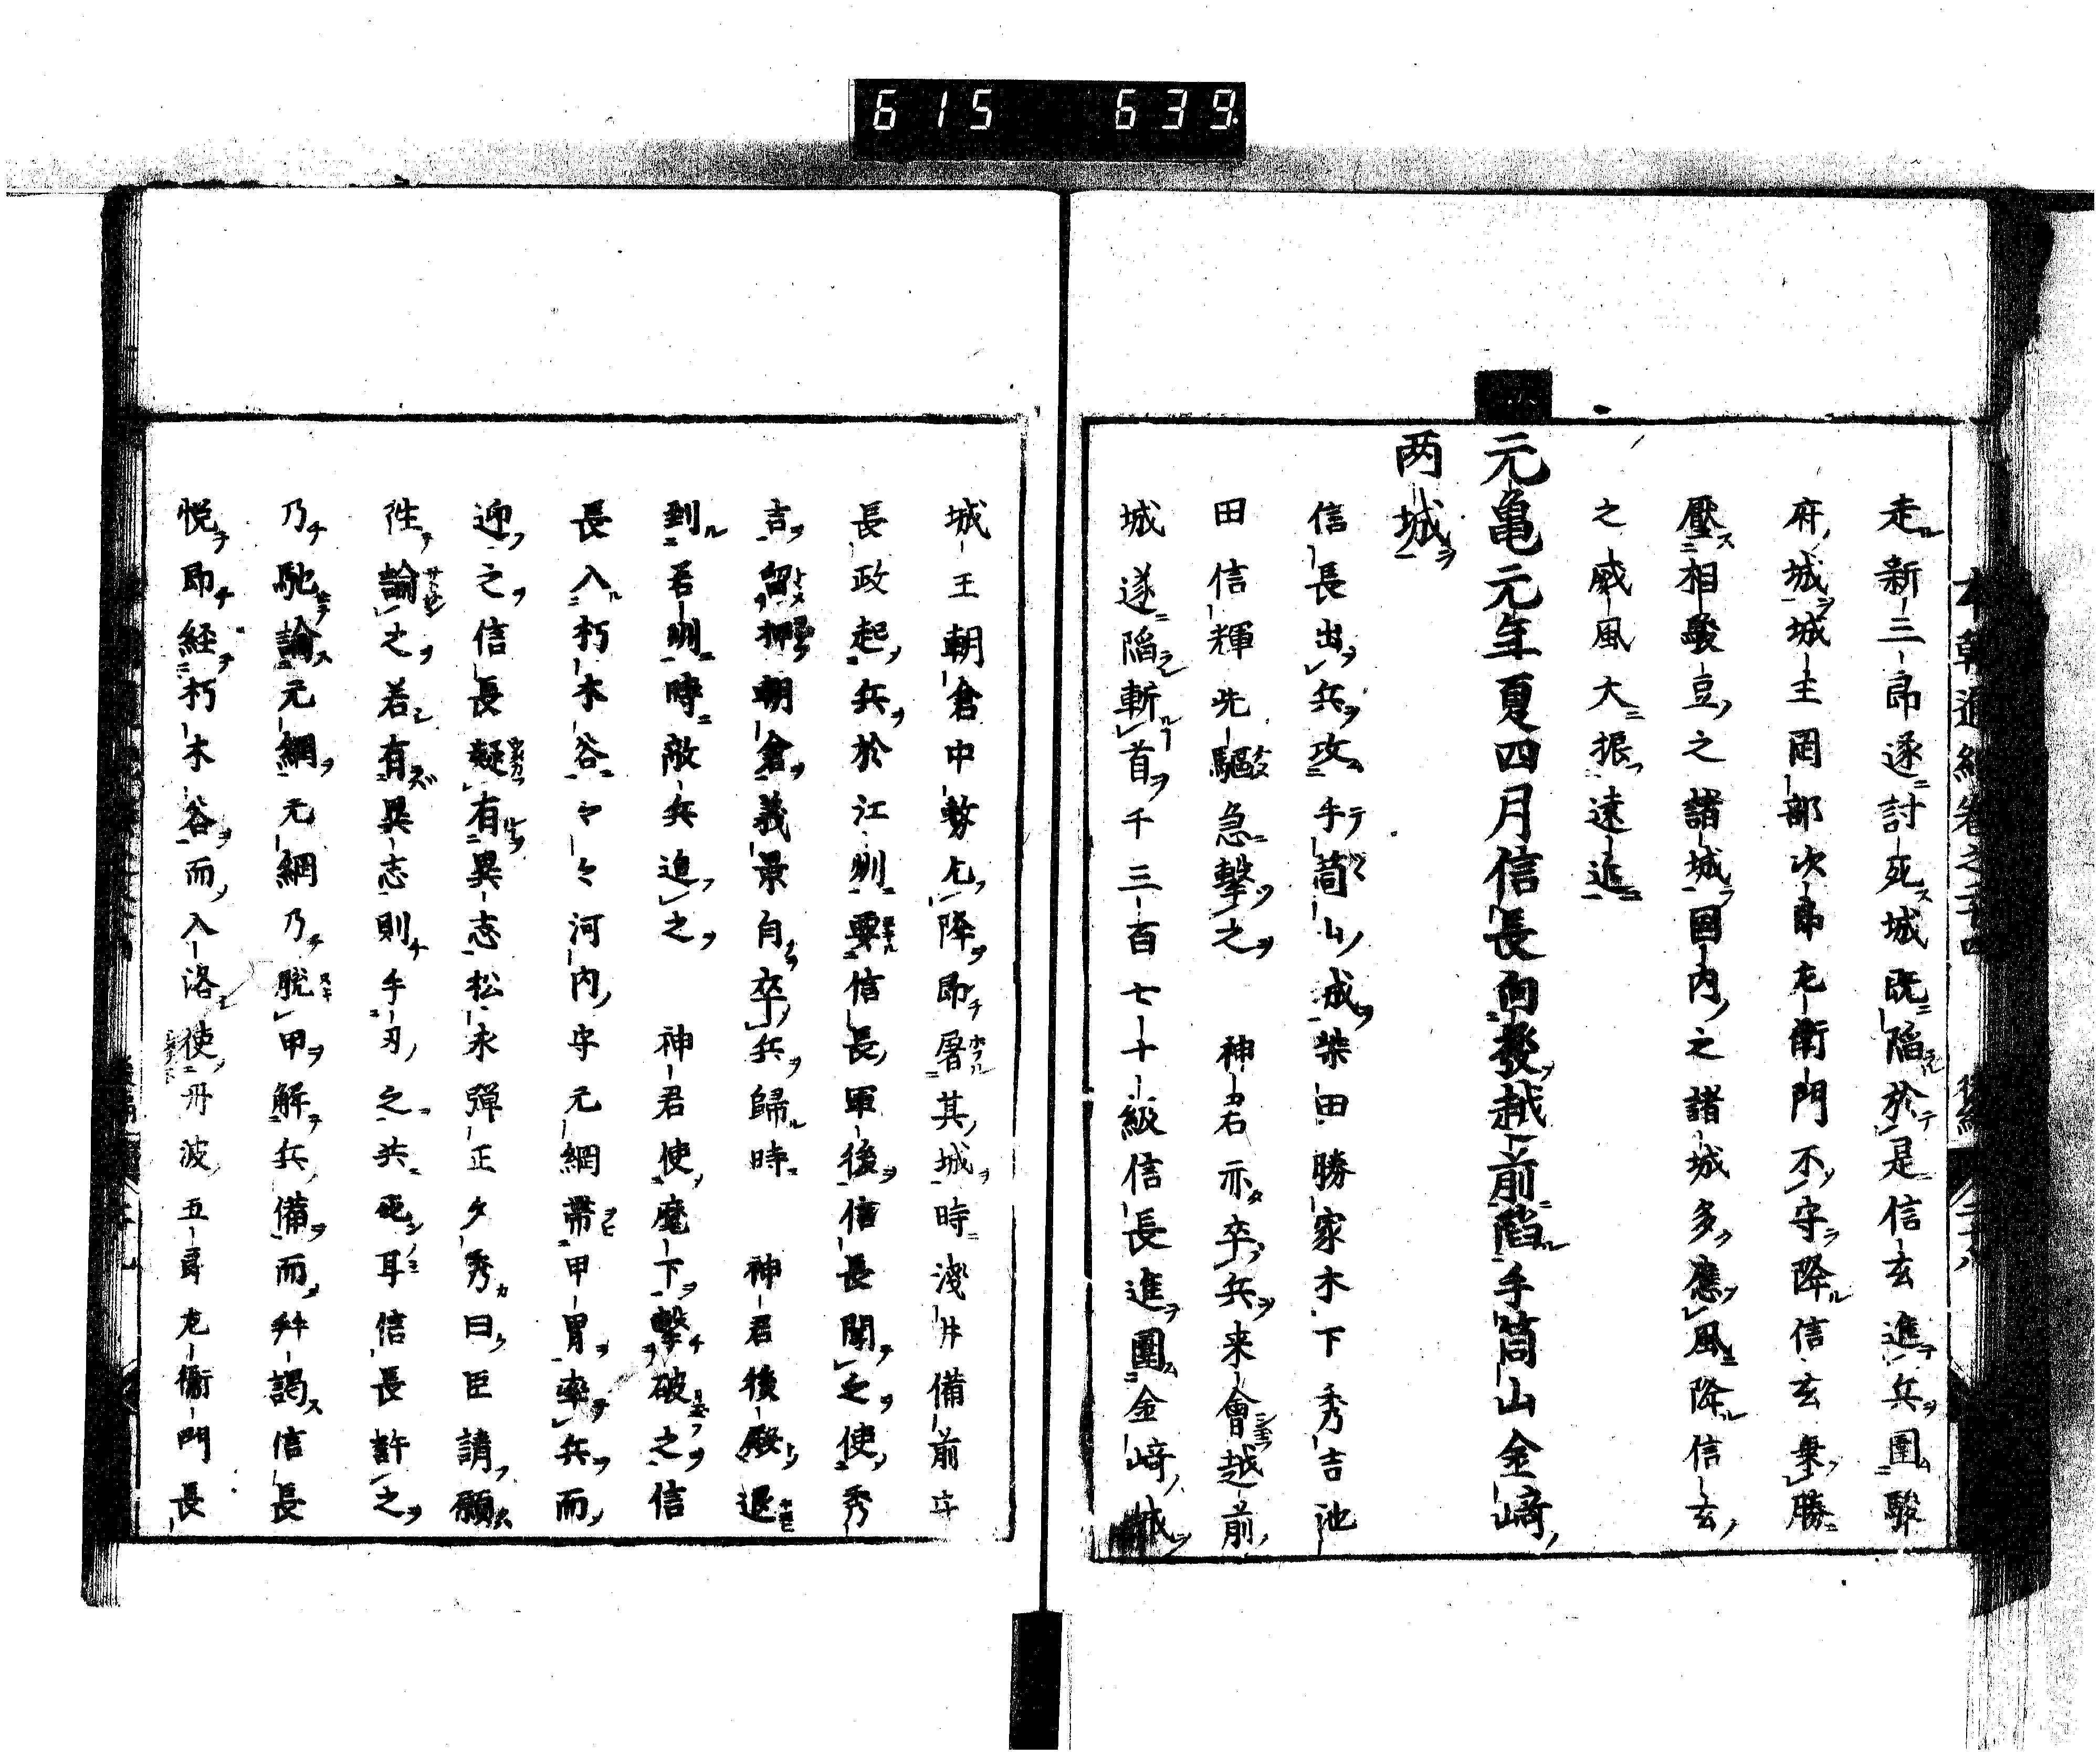 615 639
走新三郎遂討死城既陥於是信玄進兵圍駿
府城城主罡部次郎左衛門不守降信玄乗勝
壓相駿豆之諸城国内之諸城多應風降信玄
之威風大振遠近
元亀元年夏四月信長向發越前陥手筒山金﨑
两城
信長出兵攻手筒山城柴田勝家木下秀吉池
田信輝先驅急擊之 神君亦卒兵来會越前
城遂陥斬首千三百七十級信長進圍金﨑城
城主朝倉中務乞降即屠其城時淺井備前守
長政起兵於江州要信長軍後信長聞之使秀
吉留押朝倉義景自卒兵歸時 神君後殿退
到若州時敵兵追之 神君使麾下擊破之信
長入朽木谷々々河内守元網帯甲冑率兵而
迎之信長疑有異志松永彈正久秀曰臣請願
徃論之若有異志則手刃之共死耳信長許之
乃馳論元網元網乃脱甲解兵備而拜謁信長
悦即経朽木谷而入洛使丹波五郎左衛門長